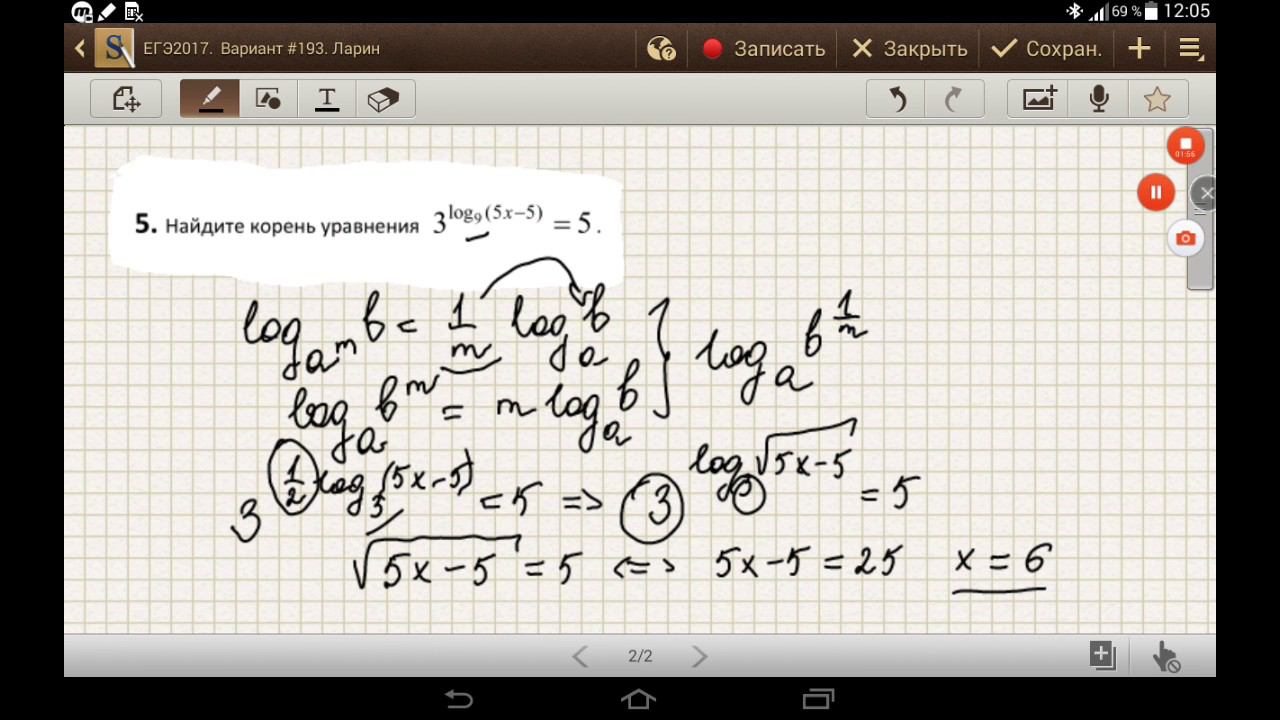 69 % 12:05
ЕГЭ2017. Вариант #193. Ларин Записать Закрыть Сохран.
T
01:56
5. Найдите корень уравнения 3^{log_9(5x−5)} = 5 .
log_{a^m} b = 1/m log_a b } log_a b^{1/m}
log_a b^m = m log_a b
3^{1/2 log_3(5x−5)} = 5 => 3^{log_3 √(5x−5)} = 5
√(5x−5) = 5 <=> 5x−5 = 25 x = 6
2/2